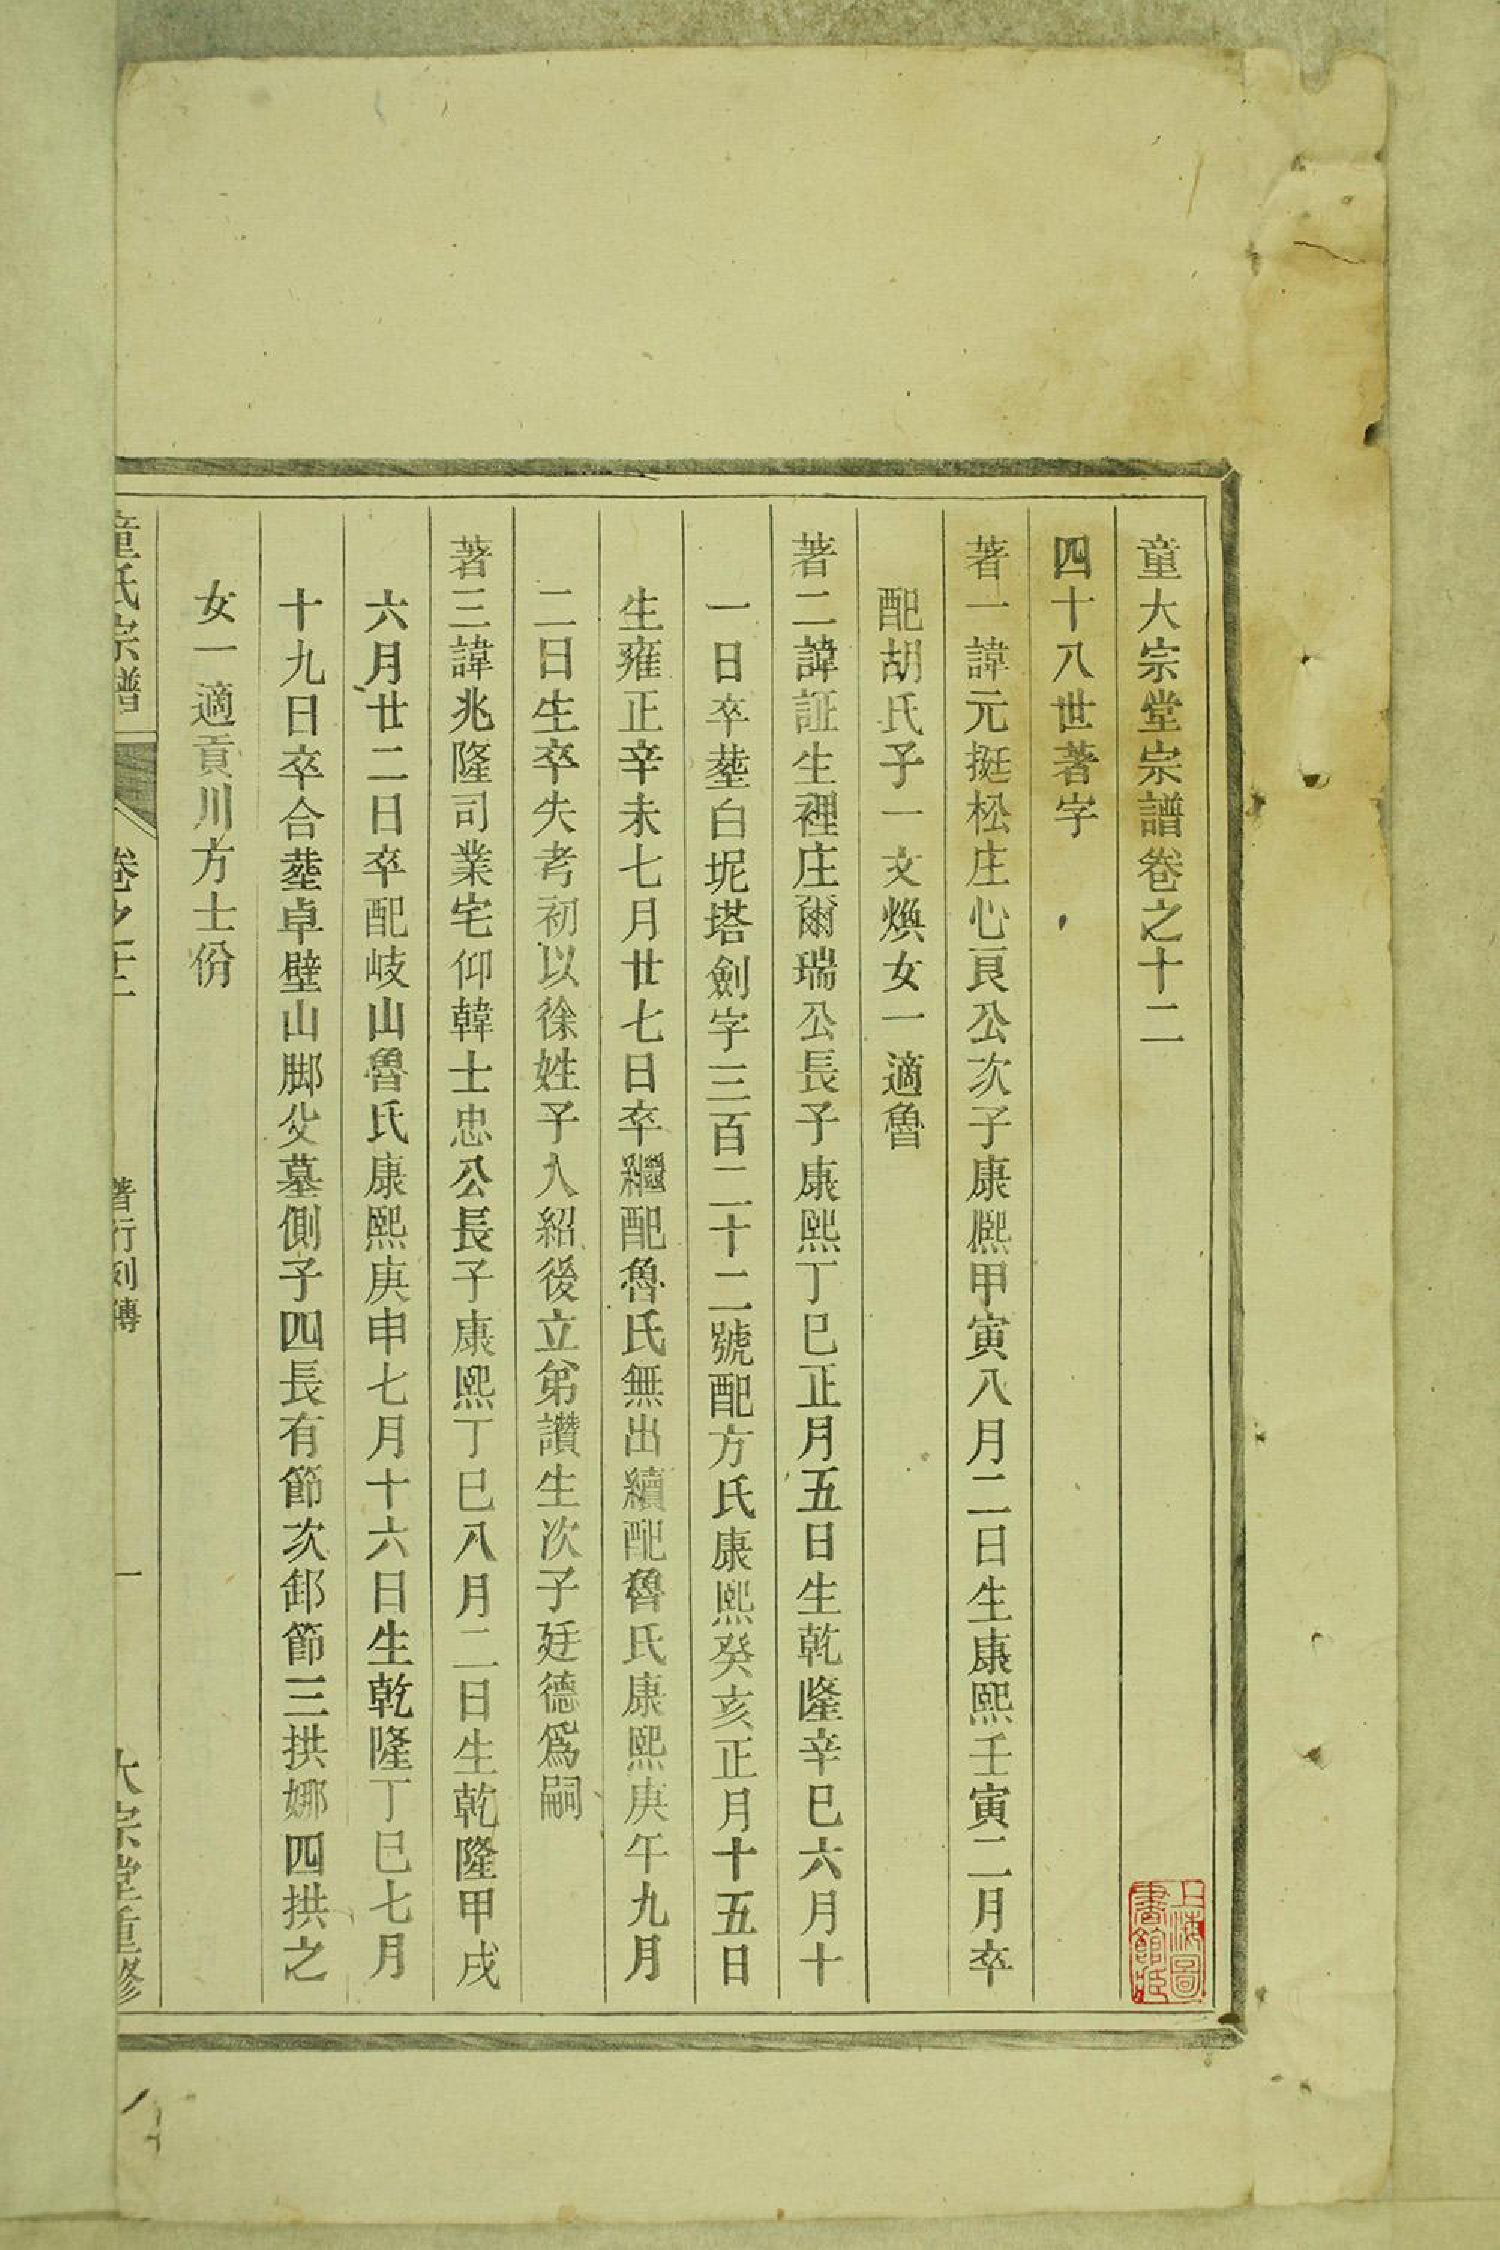 童大宗堂宗譜卷之十二
四十八世著字
著一諱元挺松庄心良公次子康熈甲寅八月二日生康熙壬寅二月卒
配胡氏子一文煥女一適魯
著二諱証生裡庄爾瑞公長子康熙丁巳正月五日生乾隆辛巳六月十
一日卒塟白坭塔劍字三百二十二號配方氏康熙癸亥正月十五日
生雍正辛未七月廿七日卒繼配魯氏無出續配魯氏康熙庚午九月
二日生卒失考初以徐姓子入紹後立弟讚生次子廷德爲嗣
著三諱兆隆司業宅仰韓士忠公長子康熙丁巳八月二日生乾隆甲戌
六月廿二日卒配岐山魯氏康熙庚申七月十六日生乾隆丁巳七月
十九日卒合塟卓壁山脚父墓側子四長有節次郵節三拱娜四拱之
女一適貢川方士份
童氏宗譜 卷之十二 著行列傳 一 大宗堂重修
上海圖書館藏